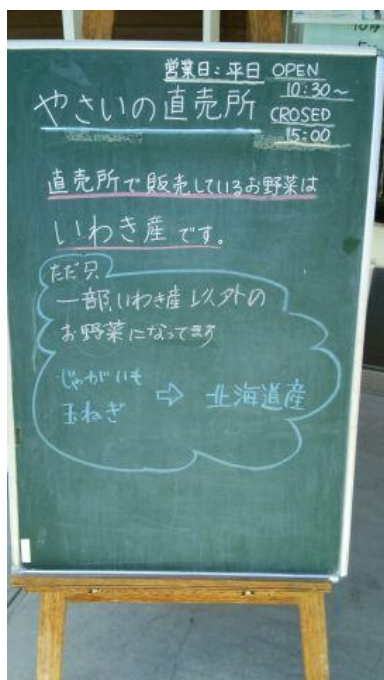 営業日:平日 OPEN
10:30~
やさいの直売所 CROSED
15:00
直売所で販売しているお野菜は
いわき産です。
ただ只
一部、いわき産以外の
お野菜になってます
じゃがいも
玉ねぎ ⇨ 北海道産